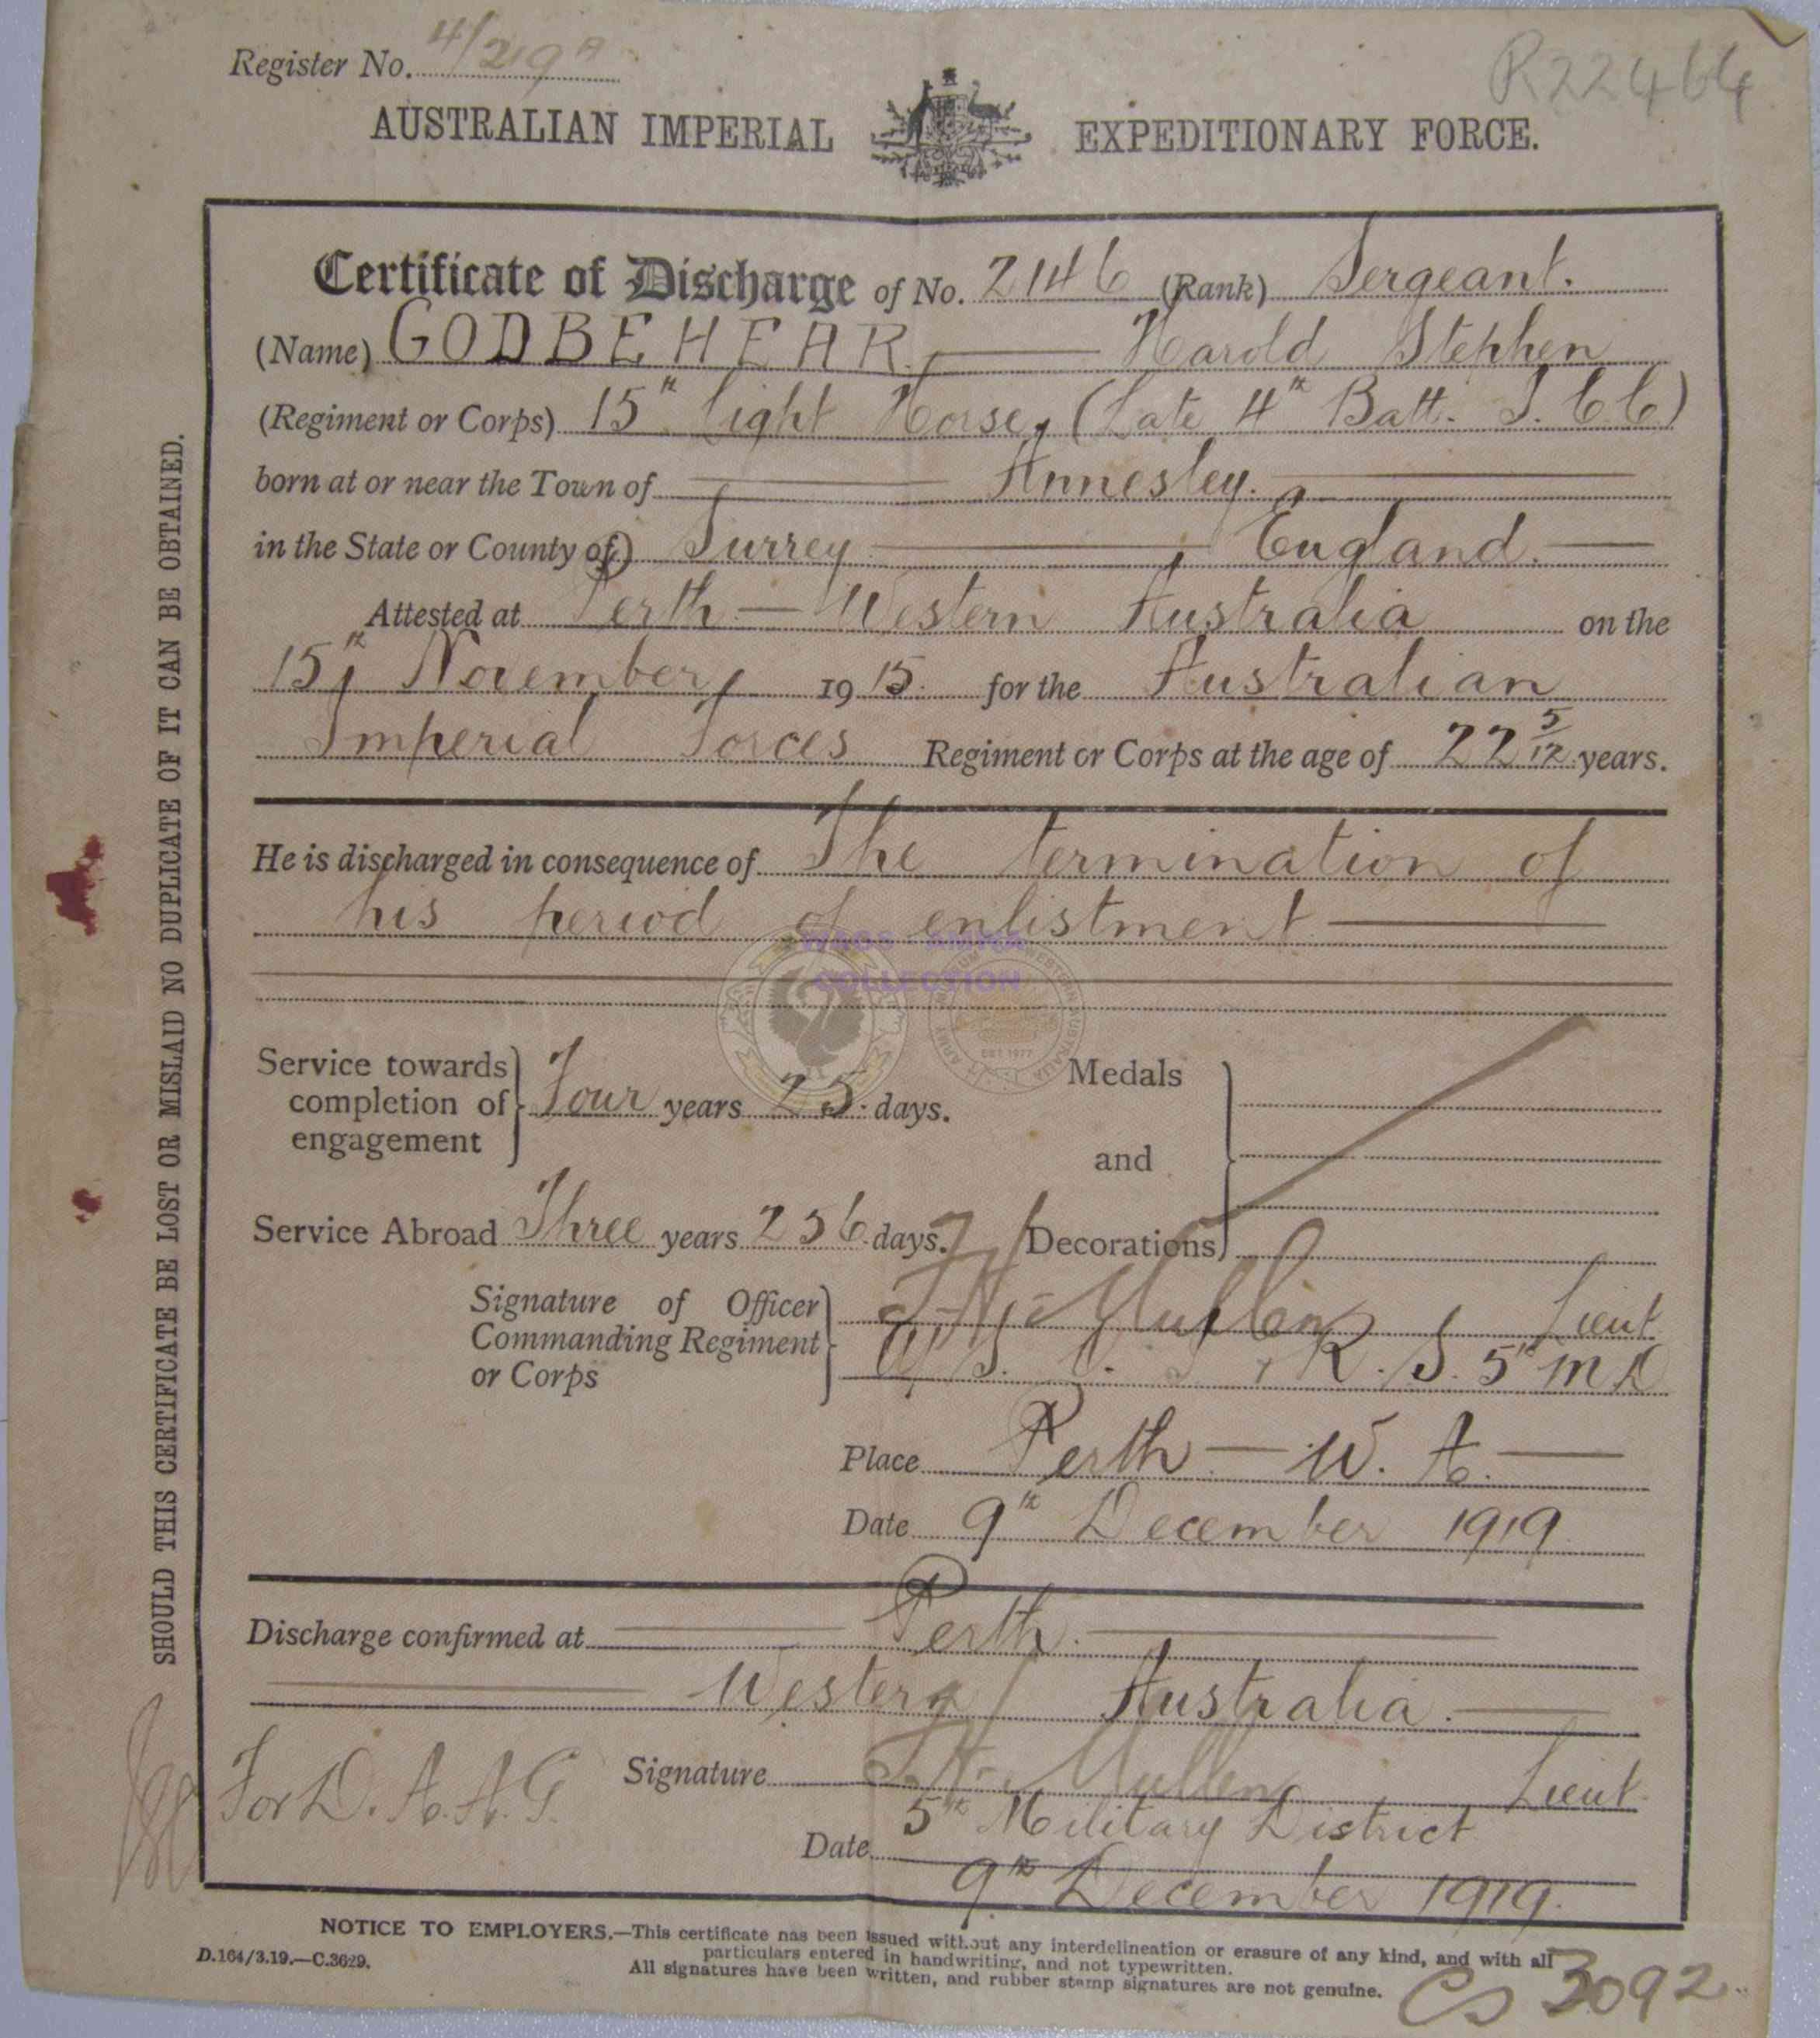 Register No. 4/219A
R22464
AUSTRALIAN IMPERIAL EXPEDITIONARY FORCE.
Certificate of Discharge of No. 2146 (Rank) Sergeant.
(Name) GODBEHEAR, Harold Stephen
(Regiment or Corps) 15th Light Horse, (Late 4th Batt. I.C.C.)
born at or near the Town of Annesley.
in the State or County of) Surrey England.
Attested at Perth — Western Australia on the
15th November, 1915. for the Australian
Imperial Forces Regiment or Corps at the age of 22 5/12 years.
He is discharged in consequence of The termination of
his period of enlistment
WAGS AMWA
COLLECTION
ARMY MUSEUM WESTERN AUSTRALIA
EST 1977
Service towards completion of engagement } Four years 25 days.
Medals and Decorations }
Service Abroad Three years 256 days.
Signature of Officer Commanding Regiment or Corps } Mullen Lieut
R. S. 5th M D
Place Perth — W. A. —
Date 9th December 1919
Discharge confirmed at Perth.
Western Australia.
For D. A. A. G Signature Mullen Lieut.
5th Military District
Date 9th December 1919.
NOTICE TO EMPLOYERS.—This certificate has been issued without any interdelineation or erasure of any kind, and with all
particulars entered in handwriting, and not typewritten.
D.164/3.19.—C.3629.
All signatures have been written, and rubber stamp signatures are not genuine.
3092
SHOULD THIS CERTIFICATE BE LOST OR MISLAID NO DUPLICATE OF IT CAN BE OBTAINED.